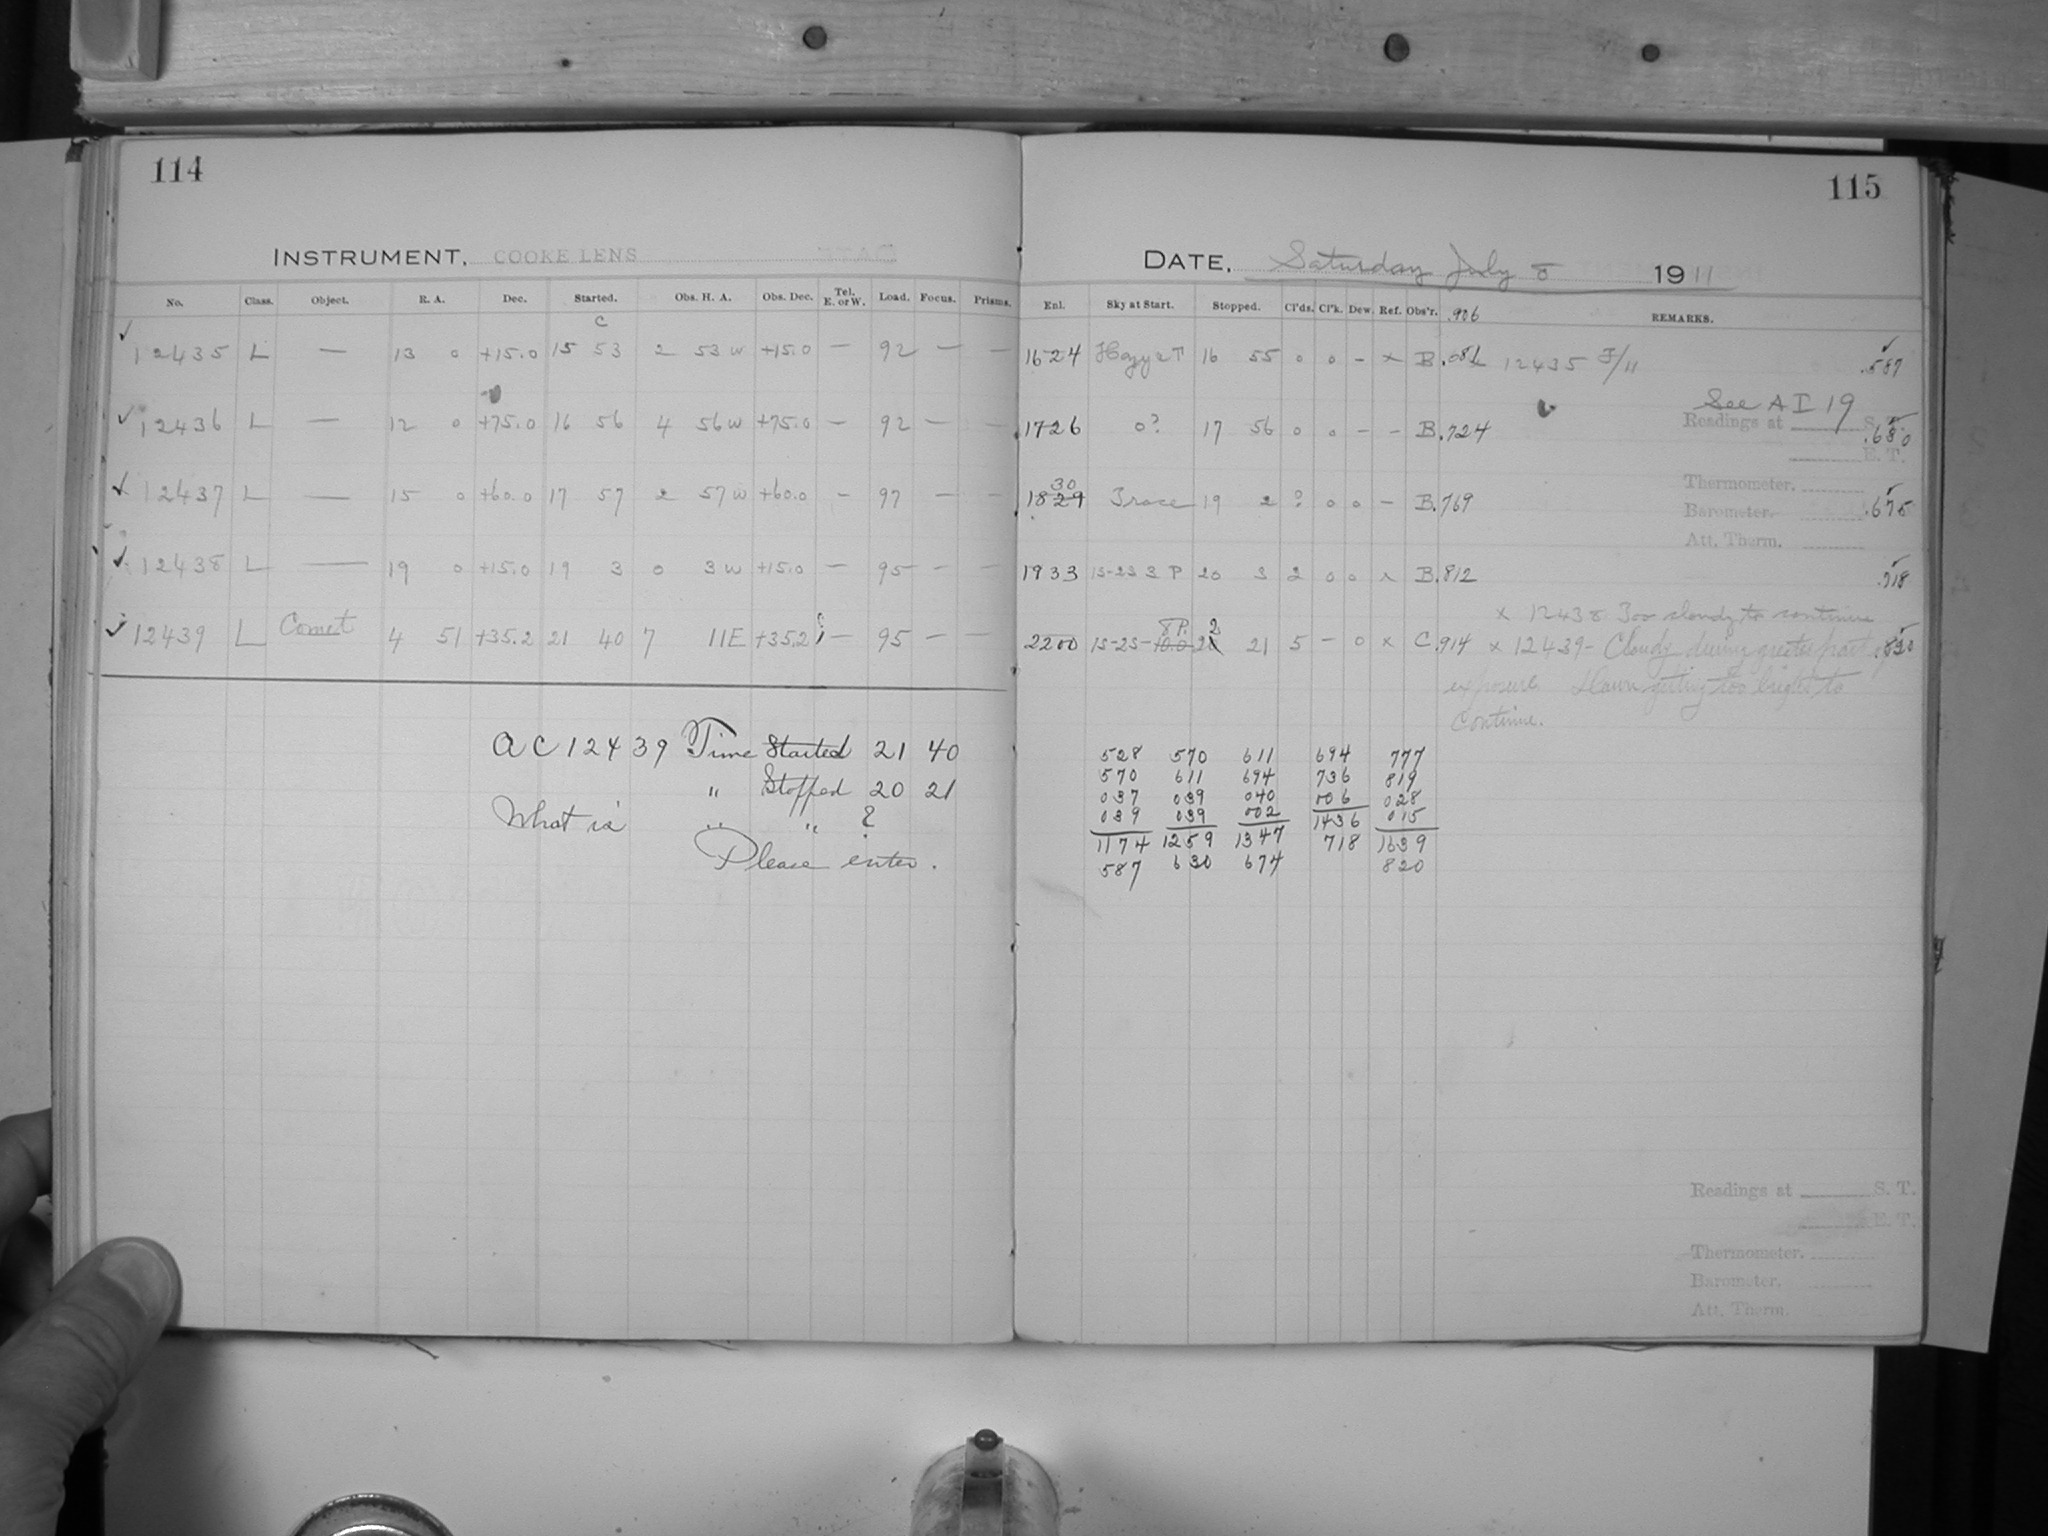 114
115
INSTRUMENT, COOKE LENS
DATE, Saturday July 8 1911
No. Class. Object. R. A. Dec. Started. Obs. H. A. Obs. Dec. Tel. E. or W. Load. Focus. Prisms.
Enl. Sky at Start. Stopped. Cl'ds. Cl'k. Dew. Ref. Obs'r. .906 REMARKS.
C
✓ 12435 L — 13 0 +15.0 15 53 2 53 W +15.0 — 92 — —
1624 16 55 0 0 - x B 12435 F/11 .587
See A I 19
✓ 12436 L — 12 0 +75.0 16 56 4 56 W +75.0 — 92 — —
1726 0? 17 56 0 0 - - B .724
Readings at S. T. .680
E. T.
✓ 12437 L — 15 0 +60.0 17 57 2 57 W +60.0 — 97 — —
30
1829 Trace 19 2 ? 0 0 - B .769
Thermometer.
Barometer. .675
Att. Therm.
✓ 12438 L — 19 0 +15.0 19 3 0 3 W +15.0 — 95 — —
1933 1S-2S 3 P 20 3 2 0 0 x B .812 .718
x 12438 Too cloudy to continue
✓ 12439 L Comet 4 51 +35.2 21 40 7 11E +35.2 — 95 — —
8P. 2
2200 1S-2S- 10.0 20 21 5 - 0 x C .914 x 12439- Cloudy during greater part of .820
exposure Dawn getting too bright to
continue.
AC 12439 Time Started 21 40
" Stopped 20 21
What is " " ?
Please enter.
528 570 611 694 777
570 611 694 736 819
037 039 040 006 028
039 039 002 1436 015
1174 1259 1347 718 1639
587 630 674 820
Readings at S. T.
E. T.
Thermometer.
Barometer.
Att. Therm.